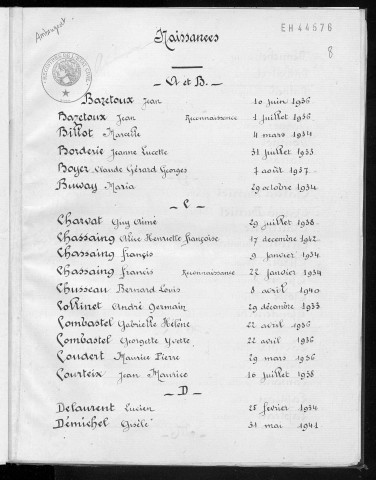 EH 44576
8
Naissances
A et B.
Bazetoux Jean 10 juin 1936
Bazetoux Jean Reconnaissance 1 juillet 1936
Billot Marcelle 4 mars 1934
Borderie Jeanne Lucette 31 juillet 1933
Boyer Claude Gérard Georges 7 août 1937
Buway Maria 29 octobre 1934
C
Charvat Guy Aimé 29 juillet 1938
Chassaing Alice Henriette françoise 17 decembre 1942
Chassaing françis 9 janvier 1934
Chassaing Francis Reconnaissance 22 janvier 1934
Chusseau Bernard Louis 8 avril 1940
Collinet André Germain 29 décembre 1933
Combastel Gabrielle Hélène 22 avril 1936
Combastel Georgette Yvette 22 avril 1936
Coudert Maurice Pierre 29 mars 1936
Courteix Jean Maurice 10 juillet 1938
D
Delaurent Lucien 25 fevrier 1934
Démichel Gisèle 31 mai 1941